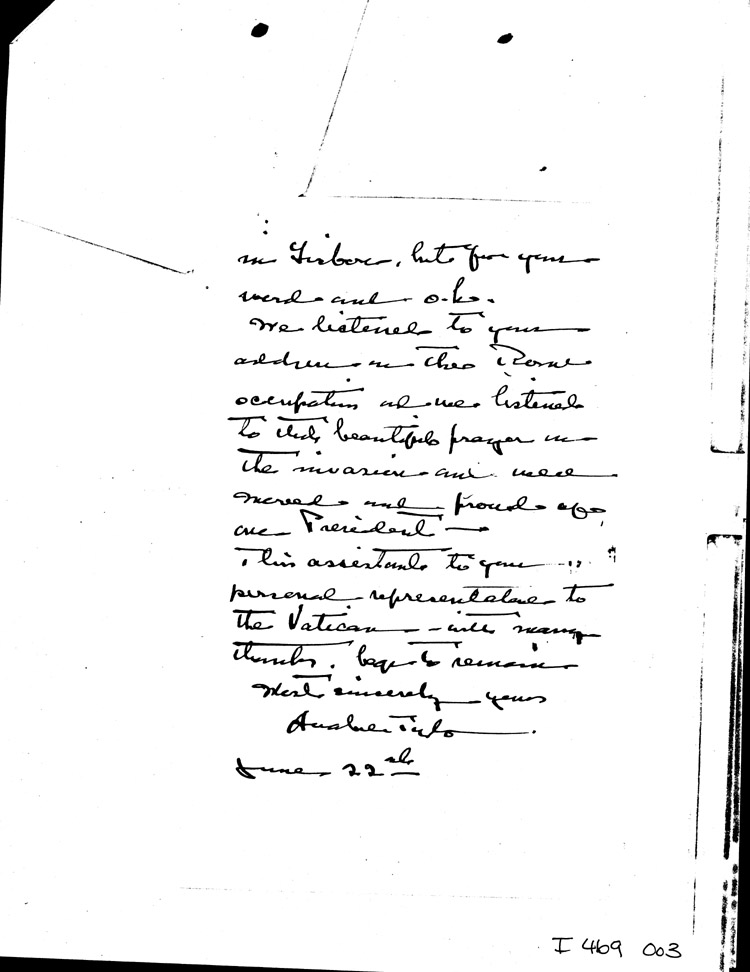 in Lisbon, but for your
word and o.k.
We listened to your
address on the Rome
occupation and we listened
to that beautiful prayer on
the invasion and were
moved and proud of
our President —
This assistant to your
personal representative to
the Vatican — with many
thanks, begs to remain
Most sincerely yours
June 22nd
I 469 003